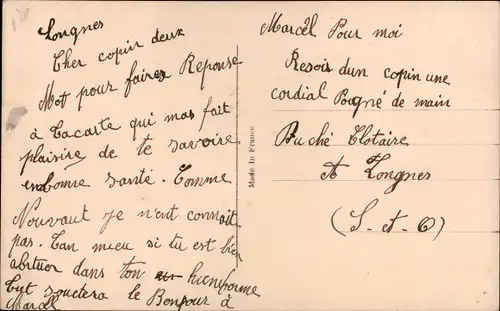 Longnes
Cher copin deux
Mot pour faires Reponse
à tacarte qui mas fait
plaisire de te savoire
enbonne santé. Comme
Nouvaut je n'ent connait
pas. Tan mieu si tu est bien
abituer dans ton
tut souctera le Bonjour à
Marcel
Made in France
Marcel Pour moi
Resois dun copin une
cordial Pogné de main
Buché Clotaire
A Longnes
(S-et-O)